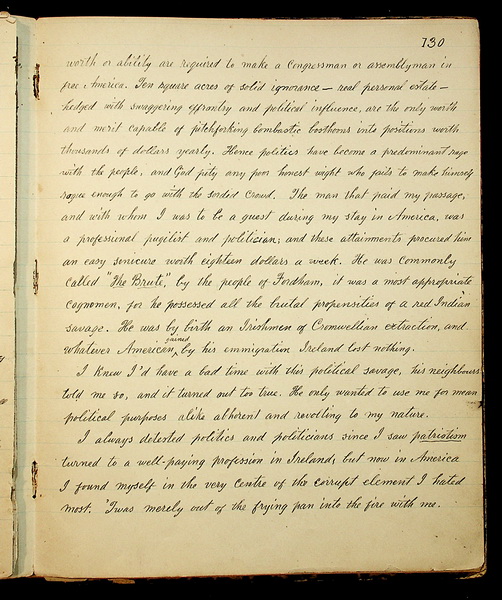 130
worth or ability are required to make a Congressman or assemblyman in
free America. Ten square acres of solid ignorance — real personal estate —
hedged with swaggering effrontry and political influence, are the only worth
and merit capable of pitchforking bombastic bosthoons into positions worth
thousands of dollars yearly. Hence politics have become a predominant rage
with the people, and God pity any poor honest wight who fails to make himself
rogue enough to go with the sordid crowd. The man that paid my passage,
and with whom I was to be a guest during my stay in America, was
a professional pugilist and politician; and these attainments procured him
an easy sinicure worth eighteen dollars a week. He was commonly
called "The Brute," by the people of Fordham, it was a most appropriate
cognomen, for he possessed all the brutal propensities of a red Indian
savage. He was by birth an Irishman of Cromwellian extraction, and
whatever American gained by his emmigration Ireland lost nothing.
I knew I'd have a bad time with this political savage, his neighbours
told me so, and it turned out too true. He only wanted to use me for mean
political purposes alike abhorent and revolting to my nature.
I always detested politics and politicians since I saw patriotism
turned to a well-paying profession in Ireland, but now in America
I found myself in the very centre of the corrupt element I hated
most. 'Twas merely out of the frying pan into the fire with me.